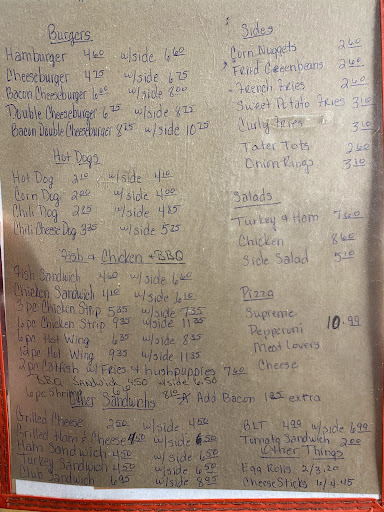 Burgers
Hamburger 4.60 w/side 6.60
Cheeseburger 4.75 w/side 6.75
Bacon Cheeseburger 6.00 w/side 8.00
Double Cheeseburger 6.75 w/side 8.75
Bacon Double Cheeseburger 8.75 w/side 10.75
Hot Dogs
Hot Dog 2.10 w/side 4.10
Corn Dog 2.00 w/side 4.00
Chili Dog 2.85 w/side 4.85
Chili Cheese Dog 3.25 w/side 5.25
Fish & Chicken & BBQ
Fish Sandwich 4.60 w/side 6.60
Chicken Sandwich 4.10 w/side 6.10
3 pc Chicken Strip 5.35 w/side 7.35
6 pc Chicken Strip 9.35 w/side 11.35
6 pc Hot Wing 6.35 w/side 8.35
Hot Wing 9.35 w/side 11.35
2 pc Catfish w/Fries & hushpuppies 7.60
BBQ Sandwich 4.50 w/side 6.50
6 pc Shrimp
Other Sandwichs
Grilled Cheese 2.50 w/side 4.50
Grilled Ham & Cheese 4.50 w/side 6.50
Ham Sandwich 4.50 w/side 6.50
Turkey Sandwich 4.50 w/side 6.50
Club Sandwich 6.95 w/side 8.95
Sides
Corn Nuggets 2.60
Fried Greenbeans 2.60
French Fries 2.60
Sweet Potato Fries 3.10
Curly Fries 3.10
Tater Tots 2.60
Onion Rings 3.10
Salads
Turkey & Ham 7.60
Chicken 8.60
Side Salad 5.10
Pizza
Supreme
Pepperoni 10.99
Meat Lovers
Cheese
Add Bacon extra
BLT 4.99 w/side 6.99
Tomato Sandwich 2.00
Other Things
Egg Rolls 2/3.20
Cheese Sticks